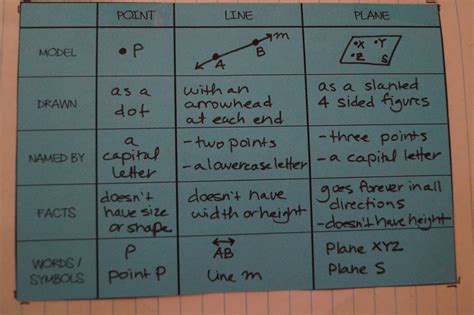 POINT LINE PLANE
MODEL
P
A B m
X Y
Z S
DRAWN
as a
dot
with an
arrowhead
at each end
as a slanted
4 sided figures
NAMED BY
a
capital
letter
- two points
- a lowercase letter
- three points
- a capital letter
FACTS
doesn't
have size
or shape
doesn't have
width or height
goes forever in all
directions
- doesn't have height
WORDS /
SYMBOLS
P
point P
AB
Line m
Plane XYZ
Plane S